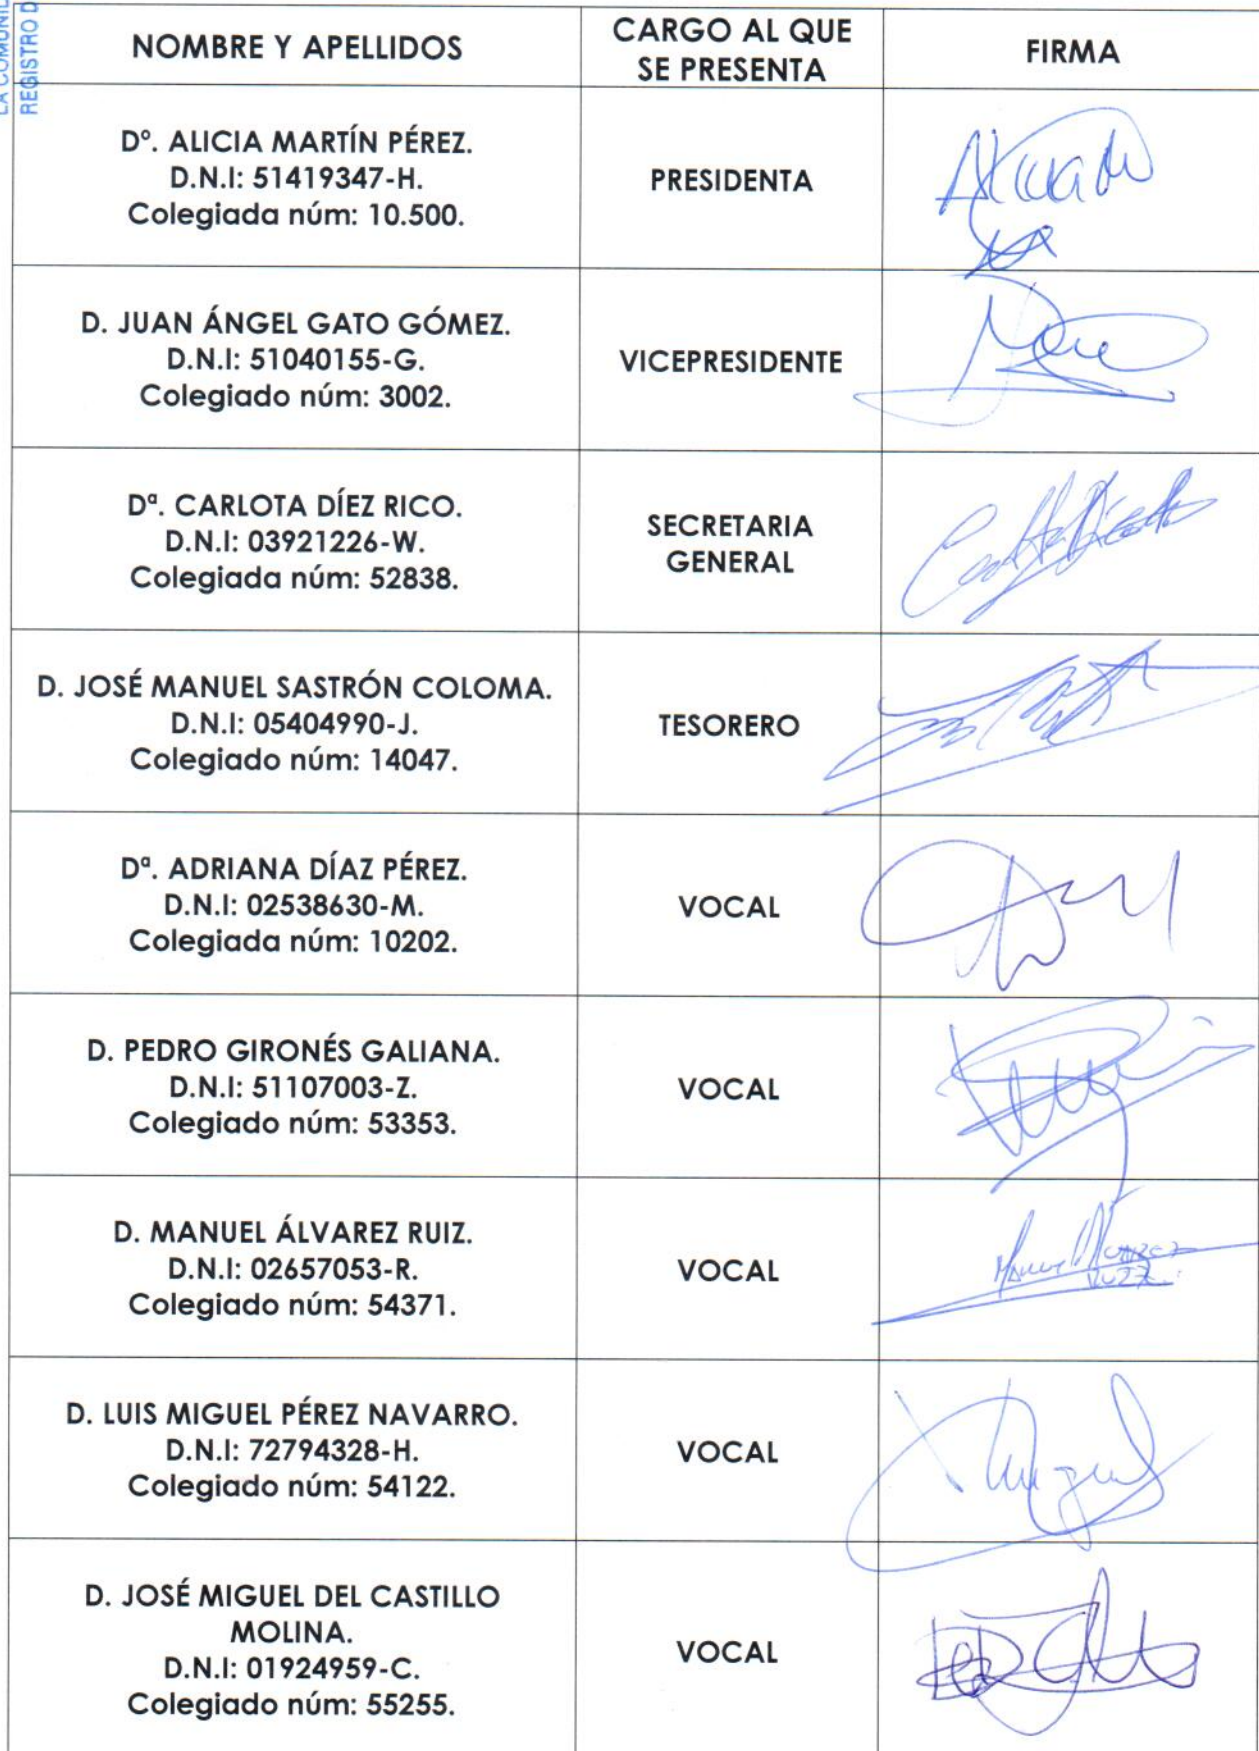 LA COMUNI
REGISTRO D
NOMBRE Y APELLIDOS
CARGO AL QUE
SE PRESENTA
FIRMA
Dº. ALICIA MARTÍN PÉREZ.
D.N.I: 51419347-H.
Colegiada núm: 10.500.
PRESIDENTA
D. JUAN ÁNGEL GATO GÓMEZ.
D.N.I: 51040155-G.
Colegiado núm: 3002.
VICEPRESIDENTE
Dª. CARLOTA DÍEZ RICO.
D.N.I: 03921226-W.
Colegiada núm: 52838.
SECRETARIA
GENERAL
D. JOSÉ MANUEL SASTRÓN COLOMA.
D.N.I: 05404990-J.
Colegiado núm: 14047.
TESORERO
Dª. ADRIANA DÍAZ PÉREZ.
D.N.I: 02538630-M.
Colegiada núm: 10202.
VOCAL
D. PEDRO GIRONÉS GALIANA.
D.N.I: 51107003-Z.
Colegiado núm: 53353.
VOCAL
D. MANUEL ÁLVAREZ RUIZ.
D.N.I: 02657053-R.
Colegiado núm: 54371.
VOCAL
D. LUIS MIGUEL PÉREZ NAVARRO.
D.N.I: 72794328-H.
Colegiado núm: 54122.
VOCAL
D. JOSÉ MIGUEL DEL CASTILLO
MOLINA.
D.N.I: 01924959-C.
Colegiado núm: 55255.
VOCAL